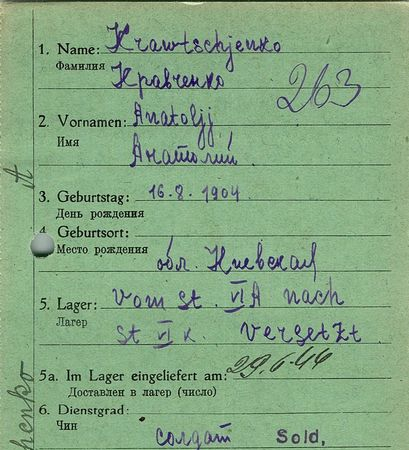 1. Name: Krawtschjenko
Фамилия Кравченко
263
2. Vornamen: Anatolij
Имя Анатолий
3. Geburtstag: 16.8.1904
День рождения
4. Geburtsort:
Место рождения
обл. Киевская
5. Lager: Vom St. VI A nach
Лагер St VI K. versetzt
5a. Im Lager eingeliefert am: 29.6.44
Доставлен в лагер (число)
6. Dienstgrad:
Чин
солдат Sold.